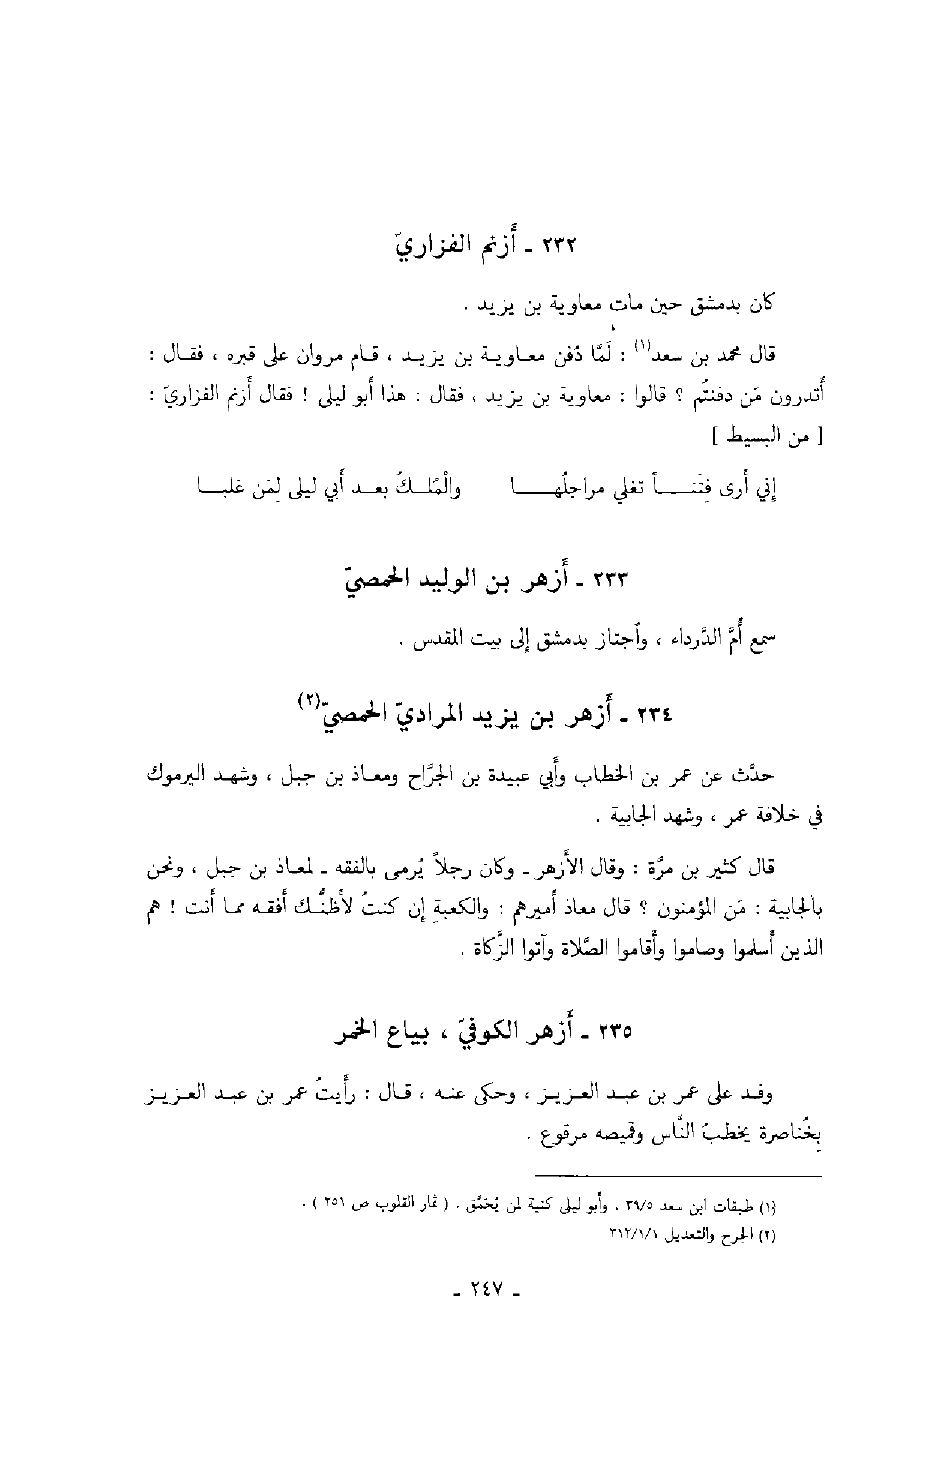 ٢٣٢ ـ أزنم الفزاريّ
كان بدمشق حين مات معاوية بن يزيد .
قال محمد بن سعد(١) : لَمَّا دُفن معـاويـة بن يزيـد ، قـام مروان على قبره ، فقـال :
أتدرون مَن دفنتُم ؟ قالوا : معاوية بن يزيد ، فقال : هذا أبو ليلى ! فقال أزنم الفزاريّ :
[ من البسيط ]
إني أرى فِتَنـــاً تغلي مراجلُهـــا والْمُلـكُ بعـد أبي ليلى لِمَن غلبـا
٢٣٣ ـ أزهر بن الوليد الحمصيّ
سمع أُمَّ الدَّرداء ، وٱجتاز بدمشق إلى بيت المقدس .
٢٣٤ ـ أزهر بن يزيد المراديّ الحمصيّ(٢)
حدَّث عن عمر بن الخطاب وأبي عبيدة بن الجرَّاح ومعـاذ بن جبـل ، وشهـد اليرموك
في خلافة عمر ، وشهد الجابية .
قال كثير بن مرَّة : وقال الأزهر ـ وكان رجلاً يُرمى بالفقه ـ لمعاذ بن جبل ، ونحن
بالجابية : مَن المؤمنون ؟ قال معاذ أميرهم : والكعبةِ إن كنتُ لأظنُّـك أفقـه ممـا أنت ! هم
الذين أسلموا وصاموا وأقاموا الصَّلاة وآتوا الزَّكاة .
٢٣٥ ـ أزهر الكوفيّ ، بياع الخمر
وفـد على عمر بن عبـد العـزيـز ، وحكى عنـه ، قـال : رأيتُ عمر بن عبـد العـزيـز
بِخُناصرة يخطبُ النَّاس وقميصه مرقوع .
(١) طبقات ابن سعد ٣٩/٥ ، وأبو ليلى كنية لمن يُحَمَّق . ( ثمار القلوب ص ٢٥١ ) .
(٢) الجرح والتعديل ٣١٢/١/١
ـ ٢٤٧ ـ